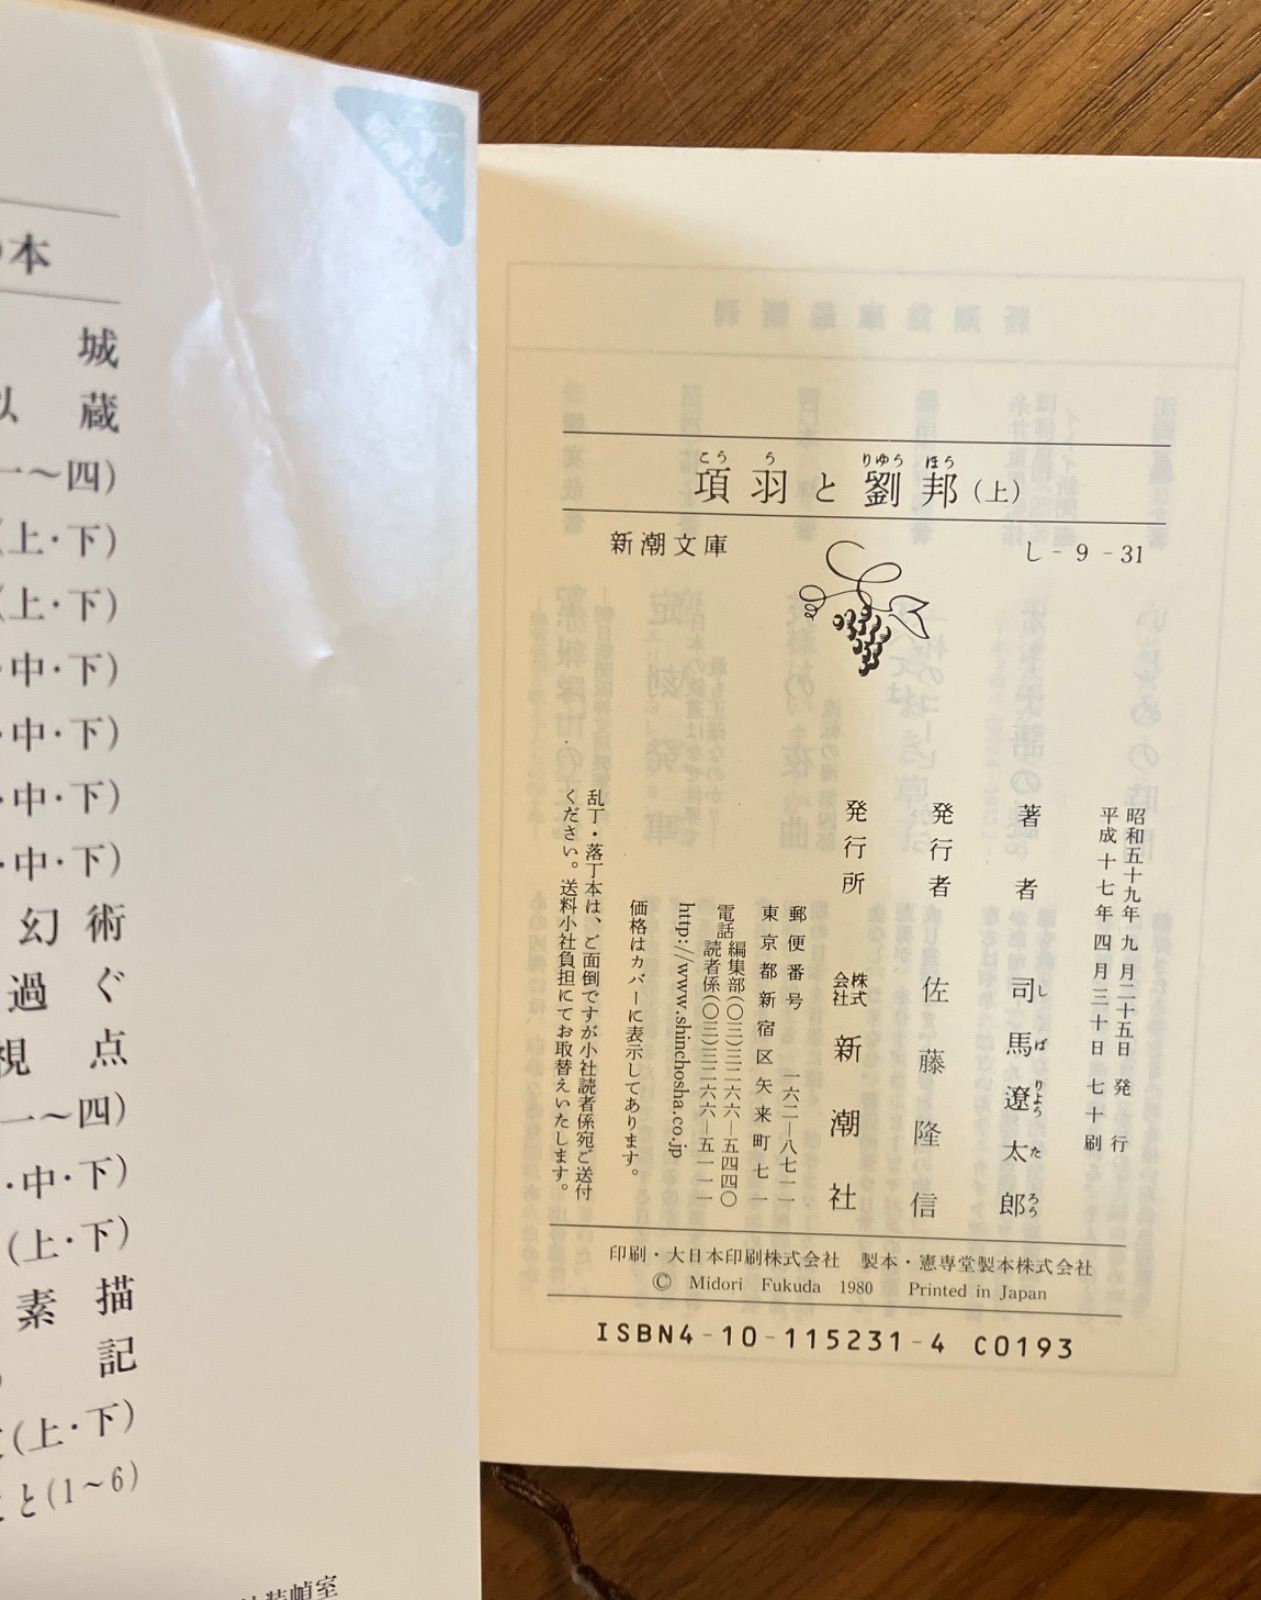 新潮文庫
本
城
蔵
一〜四)
(上・下)
(上・下)
・中・下)
・中・下)
・中・下)
・中・下)
幻術
過ぐ
視点
一〜四)
・中・下)
(上・下)
素描
記
(上・下)
と(1〜6)
装幀室
こう う りゆう ほう
項羽と劉邦(上)
新潮文庫 し-9-31
昭和五十九年九月二十五日発行
平成十七年四月三十日七十刷
著者 司馬遼太郎
しばりようたろう
発行者 佐藤隆信
発行所 株式会社 新潮社
郵便番号 一六二―八七一一
東京都新宿区矢来町七一
電話 編集部(〇三)三二六六―五四四〇
読者係(〇三)三二六六―五一一一
http://www.shinchosha.co.jp
価格はカバーに表示してあります。
乱丁・落丁本は、ご面倒ですが小社読者係宛ご送付
ください。送料小社負担にてお取替えいたします。
印刷・大日本印刷株式会社 製本・憲専堂製本株式会社
© Midori Fukuda 1980 Printed in Japan
ISBN4-10-115231-4 C0193